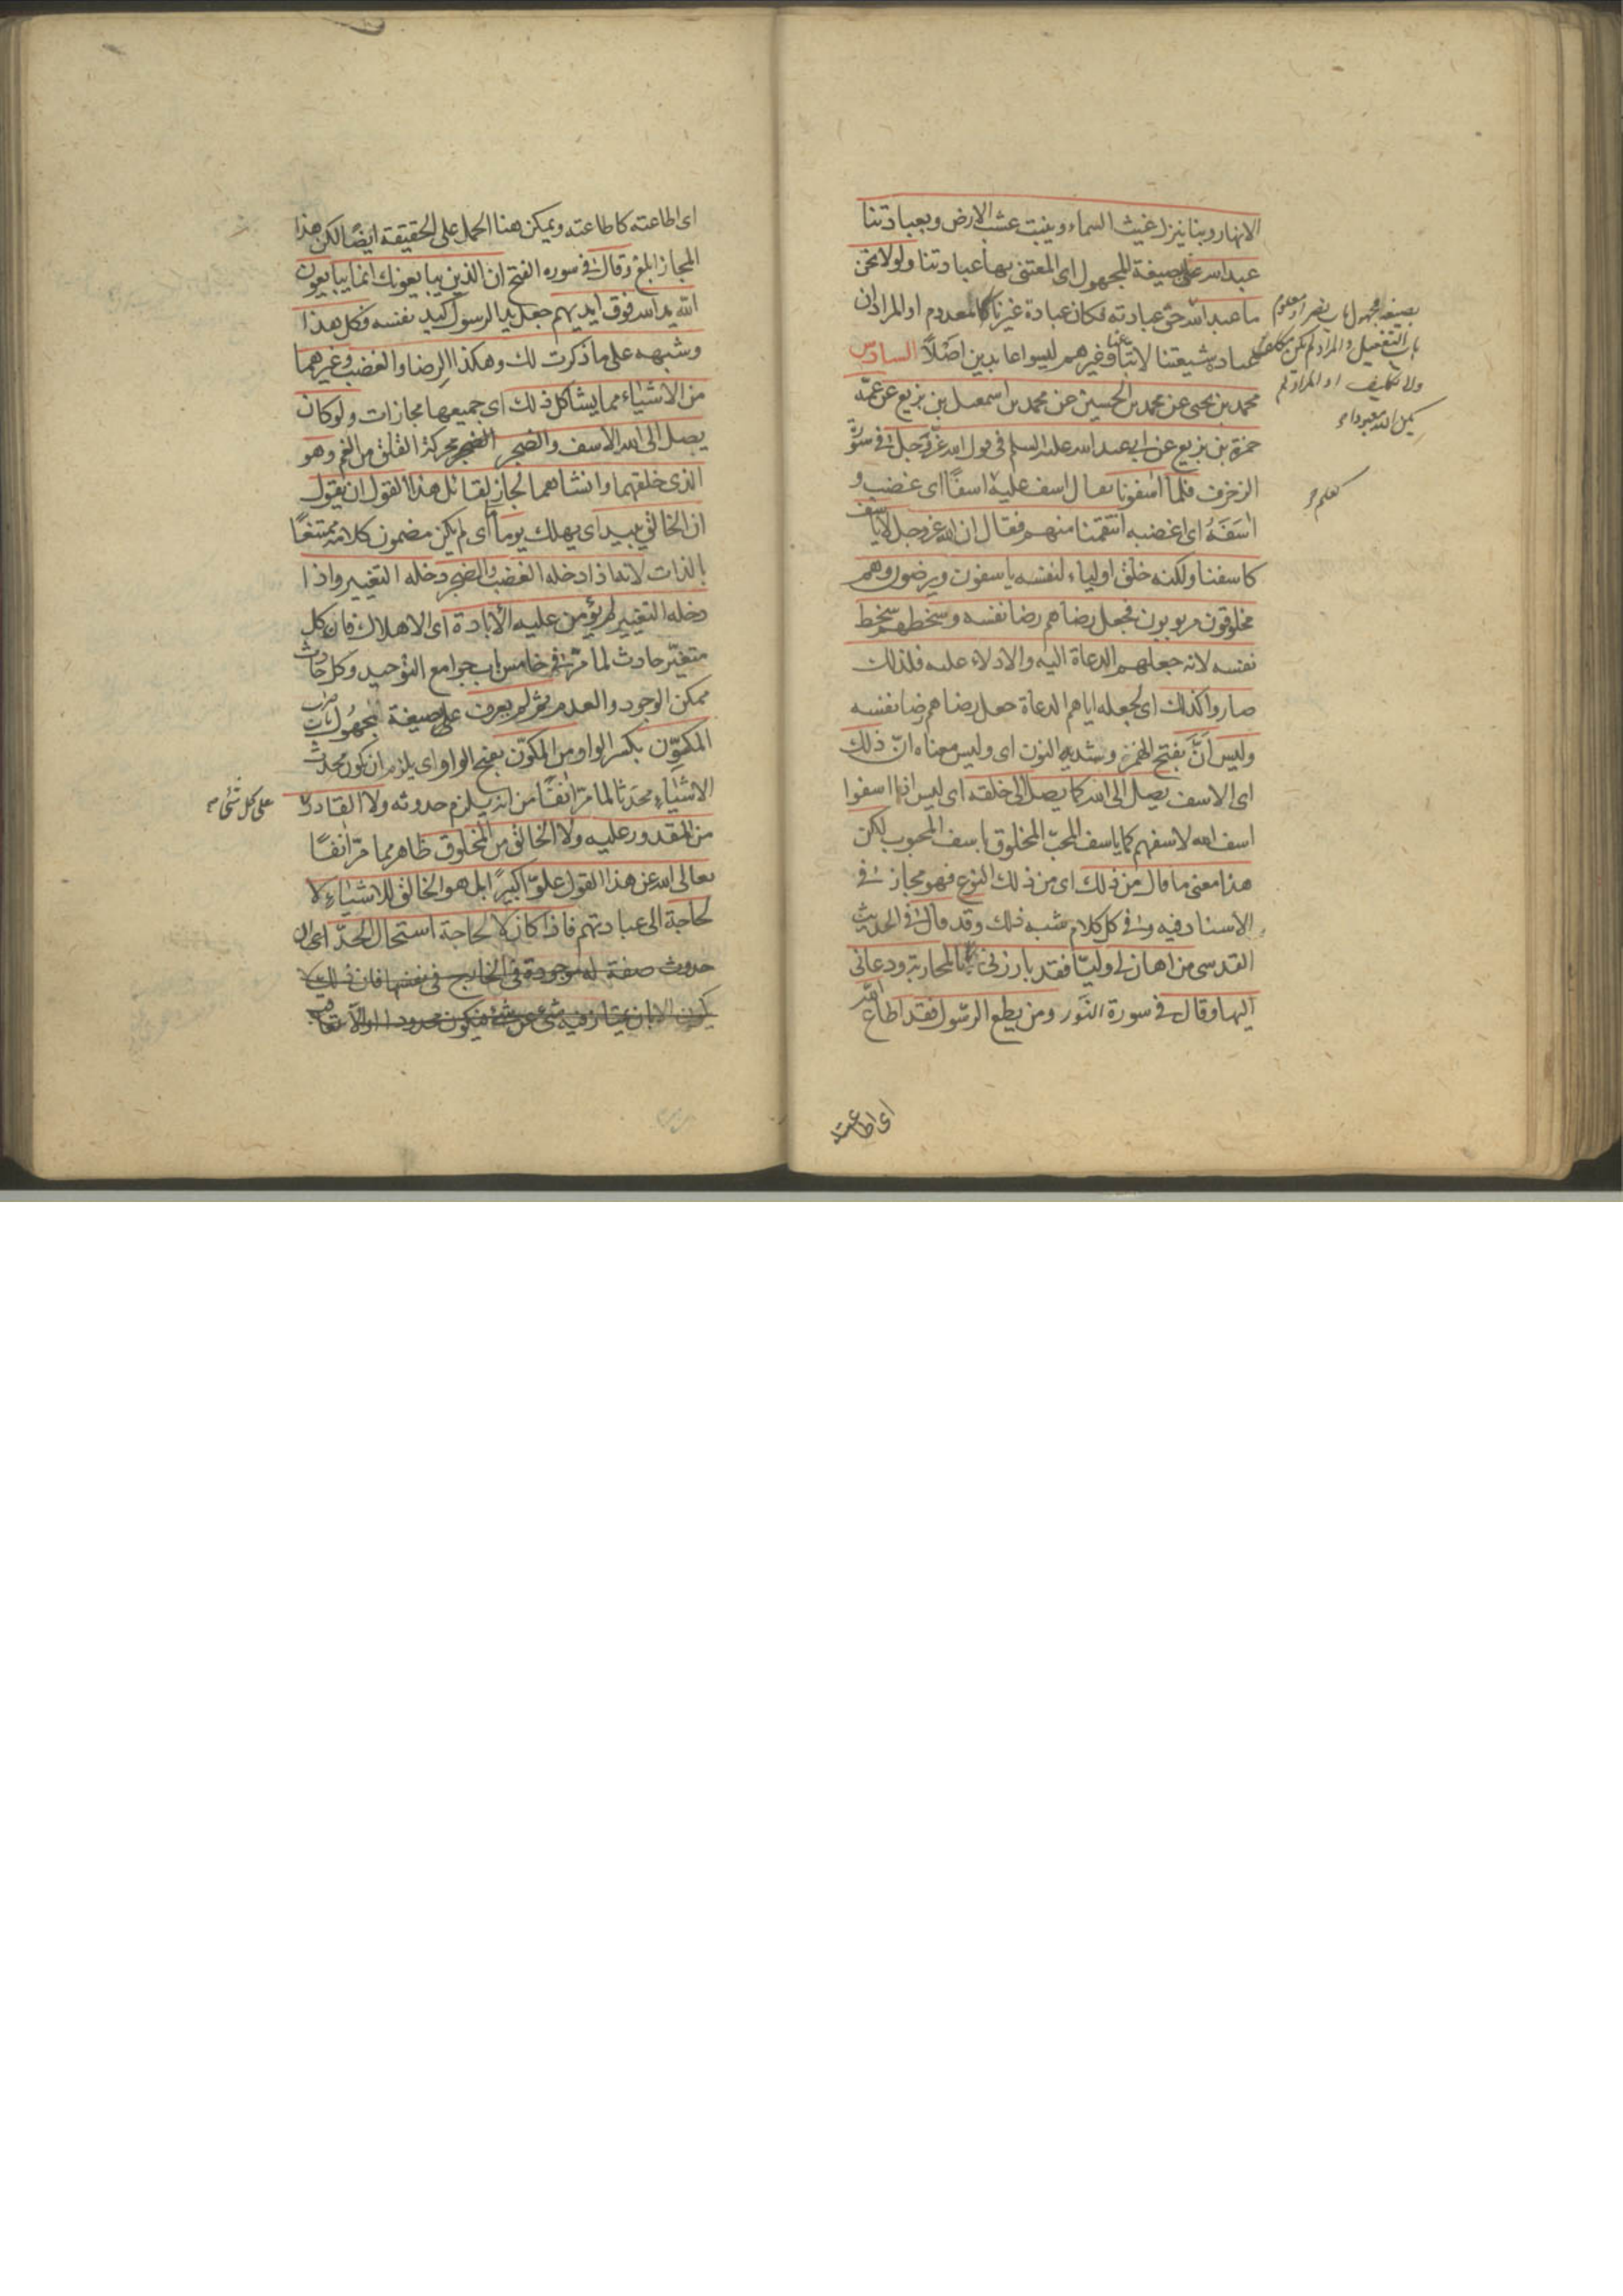 الانهار وبنا ينزل غيث السماء وينبت عشب الارض وبعبادتنا
عبد الله على صيغة المجهول اى المعتنى بها عبادتنا ولولا نحن
ما عبد الله حق عبادته فكان عبادة غيرنا كالمعدوم او المراد ان
عباد شيعتنا لاتباعنا وغيرهم ليسوا عابدين اصلاً السادس
محمد بن يحيى عن محمد بن الحسين عن محمد بن اسمعيل بن بزيع عن عمّه
حمزة بن بزيع عن ابى عبد الله عليه السلم فى قول الله عزّ وجل فى سورة
الزخرف فلما آسفونا يقال اسف عليه اسفًا اى غضب و
آسَفَهُ اى اغضبه انتقمنا منهم فقال ان الله عز وجل لا يأسف
كاسفنا ولكنه خلق اولياء لنفسه ياسفون ويرضون وهم
مخلوقون مربوبون فجعل رضاهم رضا نفسه وسخطهم سخط
نفسه لانه جعلهم الدعاة اليه والادلاء عليه فلذلك
صاروا كذلك اى لجعله اياهم الدعاة جعل رضاهم رضا نفسه
وليس اَنَّ بفتح الهمزة وتشديد النون اى وليس معناه انّ ذلك
اى الاسف يصل الى الله كما يصل الى خلقه اى ليس اذا اسفوا
اسف الله لاسفهم كما ياسف المحبّ المخلوق باسف المحبوب لكن
هذا معنى ما قال من ذلك اى من ذلك النوع فهو مجاز فى
الاسناد فيه وفى كل كلام شبه ذلك وقد قال فى الحديث
القدسى من اهان لى وليّا فقد بارزنى بالمحاربة ودعانى
اليها وقال فى سورة النّور ومن يطع الرّسول فقد اطاع الله
اى اطاعته
بصيغة مجهول باب نصر او معلوم
باب التفعيل والمراد لم يكن مكلف
ولا تكليف او المراد لم
يكن الله معبودا
اى اطاعته كاطاعته ويمكن هنا الحمل على الحقيقة ايضًا لكن هذا
المجاز ابلغ وقال فى سورة الفتح ان الذين يبايعونك انما يبايعون
الله يد الله فوق ايديهم جعل يد الرسول كيد نفسه فكل هذا
وشبهه على ما ذكرت لك وهكذا الرضا والغضب وغيرهما
من الاشياء مما يشاكل ذلك اى جميعها مجازات ولو كان
يصل الى الله الاسف والضجر الضجر محركة القلق من الغم وهو
الذى خلقهما وانشاهما لجاز لقائل هذا القول ان يقول
ان الخالق يبيد اى يهلك يوما اى لم يكن مضمون كلامه ممتنعًا
بالذات لانه اذا دخله الغضب والضجر دخله التغيير واذا
دخله التغيير لم يؤمن عليه الابادة اى الاهلاك فان كل
متغيّر حادث لما مرّ فى خامس باب جوامع التوحيد وكل حادث
ممكن الوجود والعدم ثم لم يعرف على صيغة المجهول باب ضرب
المكوِّن بكسر الواو من المكوَّن بفتح الواو اى يلزم ان يكون محدث
الاشياء محدَثا لما مرّ انفًا من انه يلزم حدوثه ولا القادر
من المقدور عليه ولا الخالق من المخلوق ظاهر مما مرّ انفًا
تعالى الله عن هذا القول علوّا كبيرًا بل هو الخالق للاشياء لا
لحاجة الى عبادتهم فاذا كان لا لحاجة استحال الحدّ اى ان
حدوث صفة له موجودة فى الخارج فى نفسها فان ذلك لا
يكون الا بان يمتاز فيه شئ عن شئ فيكون محدودا
على كل شئ